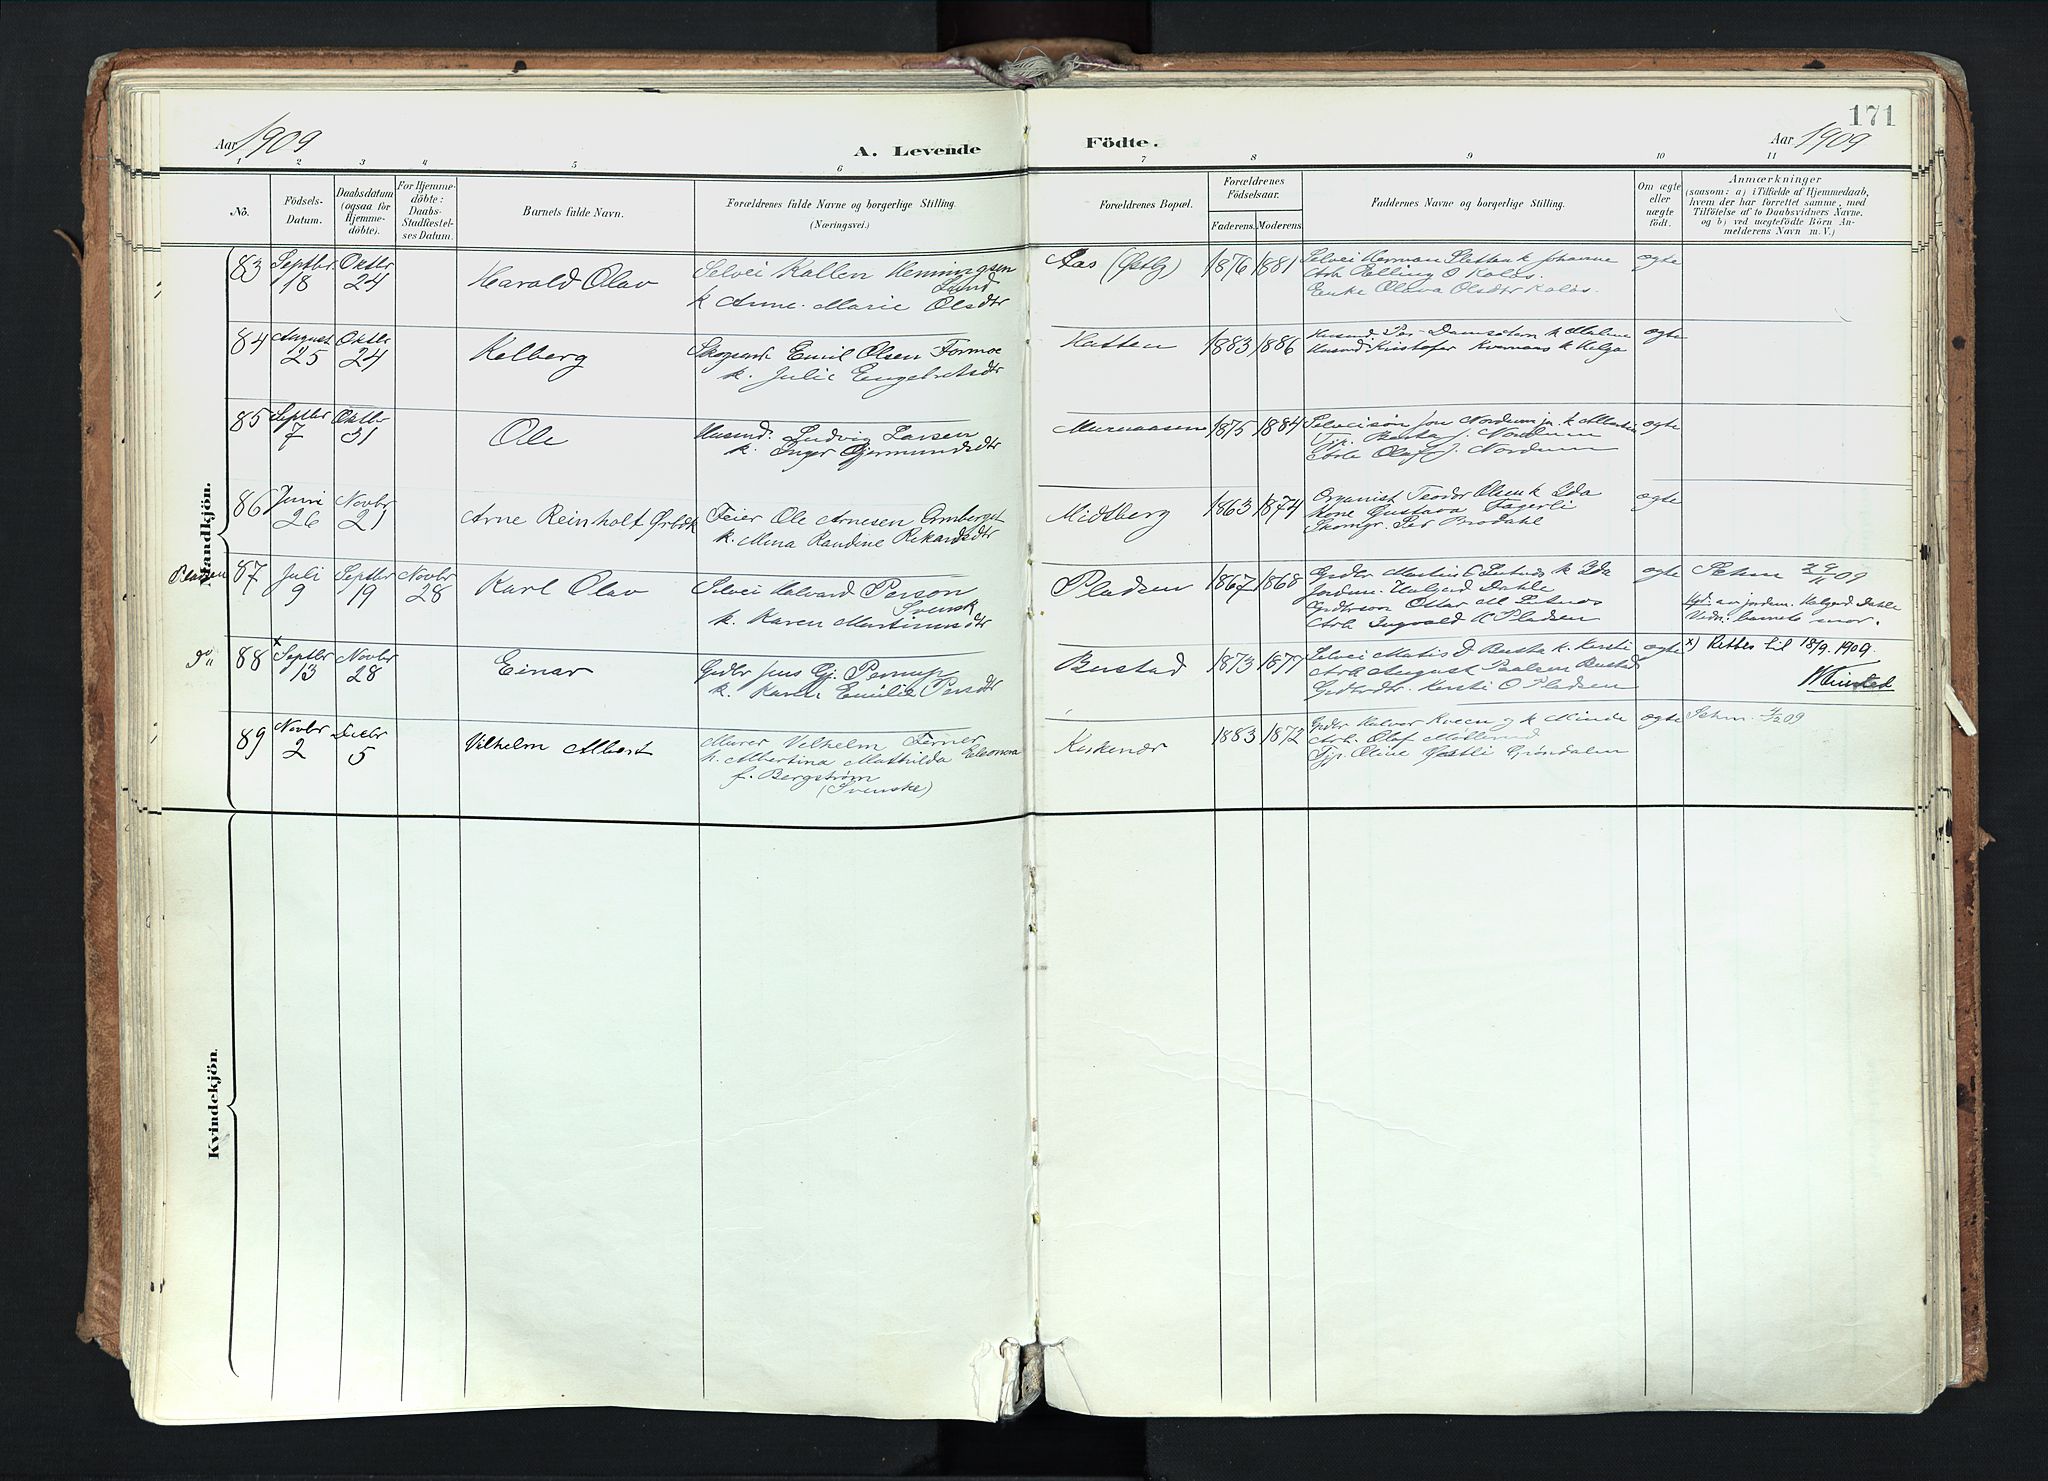 171
Aar 1909
A. Levende Födte.
Aar 1909
1 2 3 4 5 6 7 8 9 10 11
No.
Födsels-Datum.
Daabsdatum (ogsaa for Hjemme-döbte).
For Hjemme-döbte: Daabs-Stadfæstel-ses Datum.
Barnets fulde Navn.
Forældrenes fulde Navne og borgerlige Stilling.
(Næringsvei.)
Forældrenes Bopæl.
Forældrenes Födselsaar.
Faderens. Moderens.
Faddernes Navne og borgerlige Stilling.
Om ægte eller uægte födt.
Anmærkninger
(saasom: a) i Tilfælde af Hjemmedaab,
hvem der har forrettet samme, med
Tilföielse af to Daabsvidners Navne,
og b) ved uægtefödte Börn An-
melderens Navn m. V.)
Mandkjön.
83 Septbr 18 Oktbr 24 Harald Olav
Selvei Kallen Henningsen
Lund
k Anne Marie Olsdtr
Aas (Østb) 1876 1881
Selvei Herman
Arb Elling O Kolos.
Enke Olava Olsdtr Kolos.
ægte
84 August 25 Oktbr 24 Kolberg
Emil Olsen Formoe
k. Julie Engebretsdtr
Hatten 1883 1886
Husmd Per k Maline
Husmd Kristofer k Helga
ægte
85 Septbr 7 Oktbr 31 Ole
Husmd. Ludvig Larsen
k. Inger Gjermundsdtr
Murmaasen 1875 1884
Selveisøn Jon Nordrum jr. k
Tjp. Berta J. Nordrum
Arb Olaf J. Nordrum
ægte
86 Juni 26 Novbr 21 Arne Reinholt
Feier Ole Arnesen
k. Mina Randine Rikardsdtr
Midtberg 1863 1874
Organist Teodor Olsen k Ida
Kone Gustava Fagerli
Skomgr. Per Brodahl
ægte
Pladsen
87 Juli 9 Septbr 19 Novbr 28 Karl Olav
Selvei Halvard Person
Svensk
k. Karen Martinusdtr
Pladsen 1867 1868
Grdbr Martin k Ida
Jordm. Halgerd Dahle
Grdbrsøn Ottar M
Arb Ingvald K Pladsen
ægte
29/11 09
Hjd: av jordm. Halgerd Dahle
Vidn: barnets mor.
do
88 x Septbr 13 Novbr 28 Einar
Grdbr Jens Gj.
k. Karen Emilie Persdtr
Bustad 1873 1877
Selvei Matis k. Kersti
Arb August Paulsen Bustad
Kersti O Pladsen
ægte
x) Rettes til 18/9 1909.
89 Novbr 2 Decbr 5 Vilhelm Albert
Murer Vilhelm Ferner
k. Albertina Mathilda Eleonora
f. Bergstrøm
(Svenske)
Kirkenær 1883 1872
Grdbr Halvor Kveen og k Minda
Arb. Olaf
Tjp. Oline Gøstli Grøndalen
ægte
Kvindekjön.